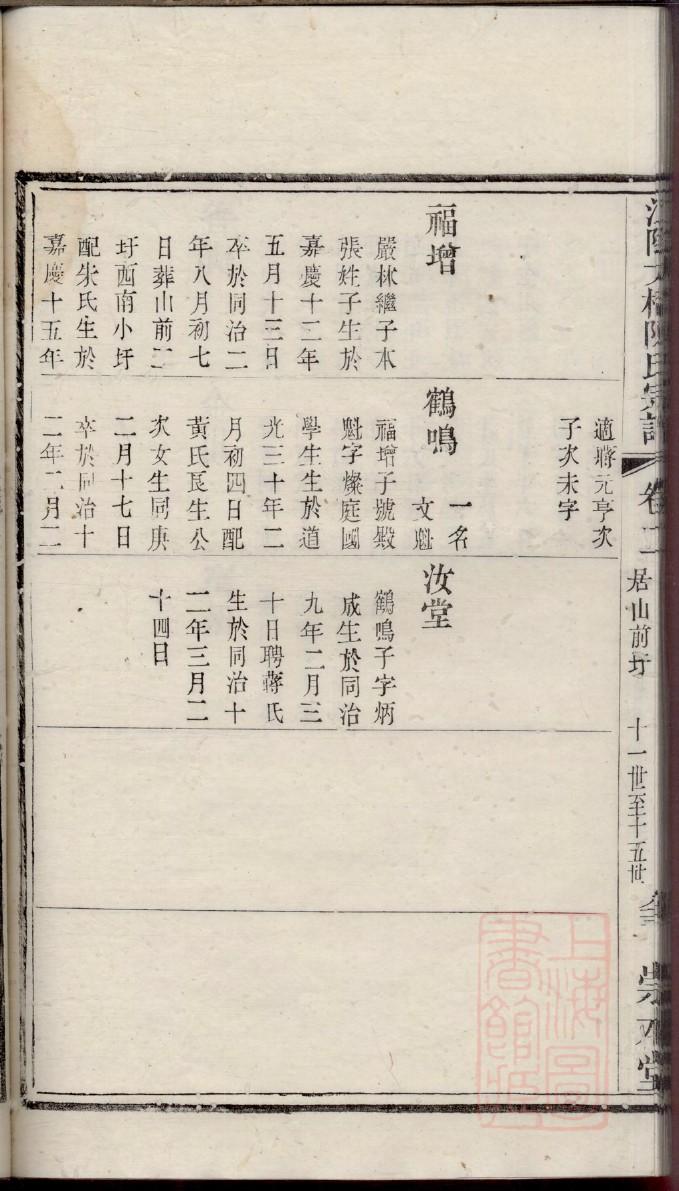 居山前圩
十一世至十五世
福增
嚴林繼子本
張姓子生於
嘉慶十二年
五月十三日
卒於同治二
年八月初七
日葬山前二
圩西南小圩
配朱氏生於
嘉慶十五年
適蔣元亨次
子次未字
鶴鳴
一名
文魁
福增子號殿
魁字燦庭國
學生生於道
光三十年二
月初四日配
黃氏良生公
次女生同庚
二月十七日
卒於同治十
二年二月二
汝堂
鶴鳴子字炳
成生於同治
九年二月三
十日聘蔣氏
生於同治十
二年三月二
十四日